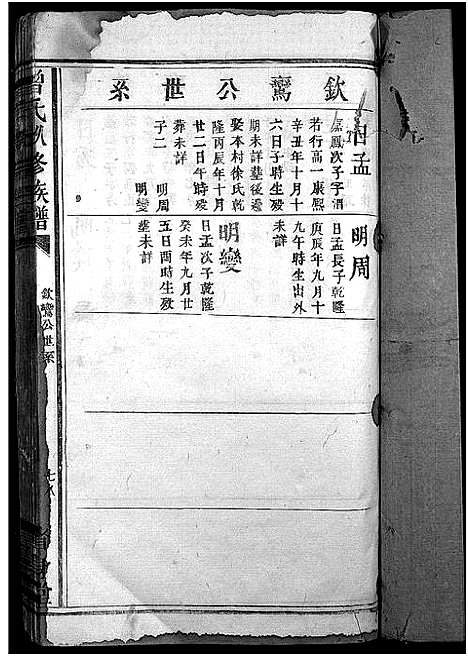 欽鸞公世系
日孟
鳳次子字泗
若行高一康熙
辛丑年十月十
六日子時生殁
期未詳墓後邊
娶本村徐氏乾
隆丙辰年十月
廿二日午時殁
葬未詳
子二 明周
明燮
明周
日孟長子乾隆
庚辰年九月十
九午時生出外
未詳
明燮
日孟次子乾隆
癸未年九月廿
五日酉時生殁
塟未詳
曾氏
修族譜
欽鸞公世系